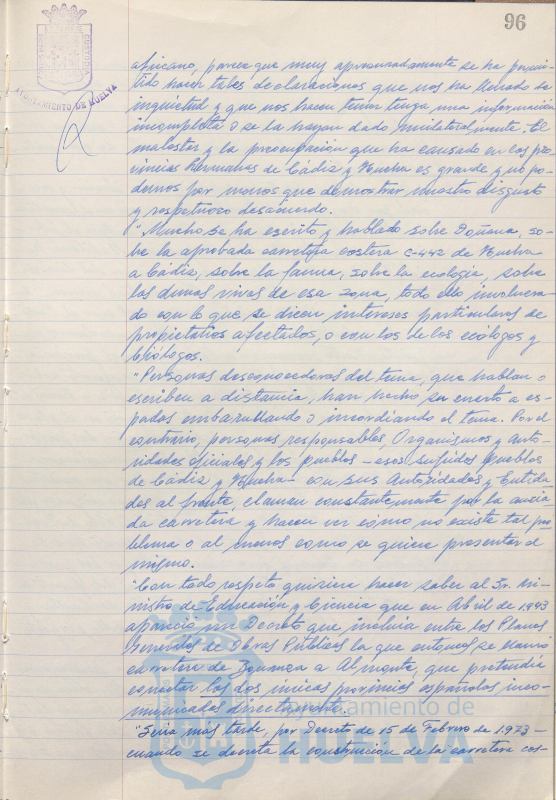 96
AYUNTAMIENTO DE HUELVA
africano, parece que muy apresuradamente se ha permi-
tido hacer tales declaraciones que nos ha llenado de
inquietud y que nos hacen temer tenga una información
incompleta o se la hayan dado unilateralmente. El
malestar y la preocupación que ha causado en las pro-
vincias hermanas de Cádiz y Huelva es grande y no po-
demos por menos que demostrar nuestro disgusto
y respetuoso desacuerdo.
"Mucho se ha escrito y hablado sobre Doñana, so-
bre la aprobada carretera costera C-442 de Huelva
a Cádiz, sobre la fauna, sobre la ecología, sobre
las dunas vivas de esa zona, todo ello involucra-
do con lo que se dicen intereses particulares de
propietarios afectados, o con los de los ecólogos y
biólogos.
"Personas desconocedoras del tema, que hablan o
escriben a distancia, han hecho su encerto a es-
padas embarullando o incordiando el tema. Por el
contrario, personas responsables, Organismos y Auto-
ridades oficiales y los pueblos - esos sufridos pueblos
de Cádiz y Huelva - con sus Autoridades y Entida-
des al frente, claman constantemente por la ansia-
da carretera y hacen ver cómo no existe tal pro-
blema o al menos como se quiere presentar el
mismo.
"Con todo respeto quisiera hacer saber al Sr. Mi-
nistro de Educación y Ciencia que en Abril de 1943
apareció un Decreto que incluía entre los Planes
Generales de Obras Públicas la que entonces se llamó
carretera de a Almonte, que pretendía
conectar las dos únicas provincias españolas inco-
municadas directamente.
"Sería más tarde, por Decreto de 15 de Febrero de 1.973 -
cuando se decreta la construcción de la carretera cos-
Ayuntamiento de
HUELVA